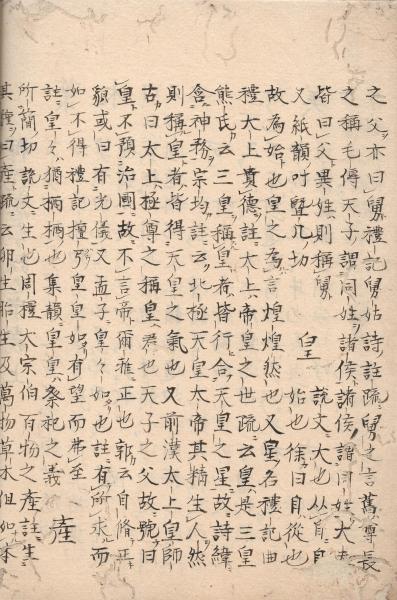 之父亦曰舅禮記舅姑詩註疏舅之言舊尊長
之稱毛傳天子謂同姓諸侯諸侯謂同姓大夫
皆曰父異姓則稱舅 皇 說文大也从自自
又紙韻叶曁几切 始也徐曰自從也
故為始也皇之為言煌煌然也又星名禮記曲
禮太上貴德註太上帝皇之世疏云皇是三皇
熊氏云三皇稱皇者皆行合天皇之星故詩緯
含神務宗均註云北極天皇太帝其精生人然
則稱皇者皆得天皇之氣也又前漢太上皇師
古曰太上極尊之稱皇君也天子之父故號曰
皇不預治國故不言帝爾雅正也郭云自脩正
貌或曰有光儀又孟子皇皇如也註有所求而
如不得禮記檀弓皇皇如有望而弗至
註皇皇猶栖栖也集韻皇皇祭祀之義 產
所簡切說文生也周禮大宗伯百物之產註生
其種曰產疏云卵生胎生及萬物草木但如本